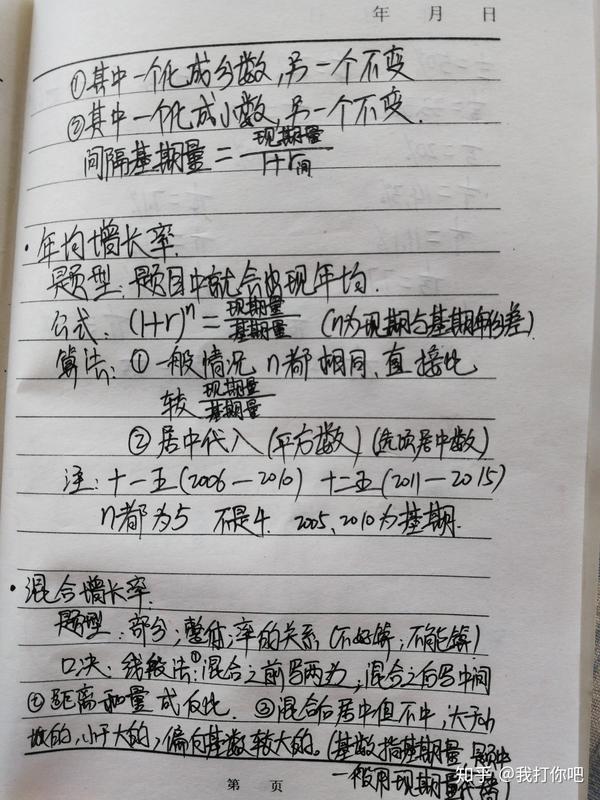 年 月 日
①其中一个化成分数,另一个不变
②其中一个化成小数,另一个不变.
间隔基期量=现期量/1+r间
·年均增长率.
题型:题目中就会出现年均.
公式:(1+r)ⁿ=现期量/基期量 (n为现期与基期年份差)
算法:①一般情况n都相同,直接比
较现期量/基期量
②居中代入(平方数)(选项居中数)
注:十一五(2006—2010) 十二五(2011—2015)
n都为5 不是4. 2005、2010为基期.
·混合增长率.
题型:部分;整体;率的关系(不好算;不能算)
口决:线段法:①混合之前写两边;混合之后写中间
②距离和量成反比. ③混合后居中但不中,大于小
的,小于大的,偏向基数较大的。(基数指基期量,题中
一般用现期量代替)
第 页
知乎 @我打你吧